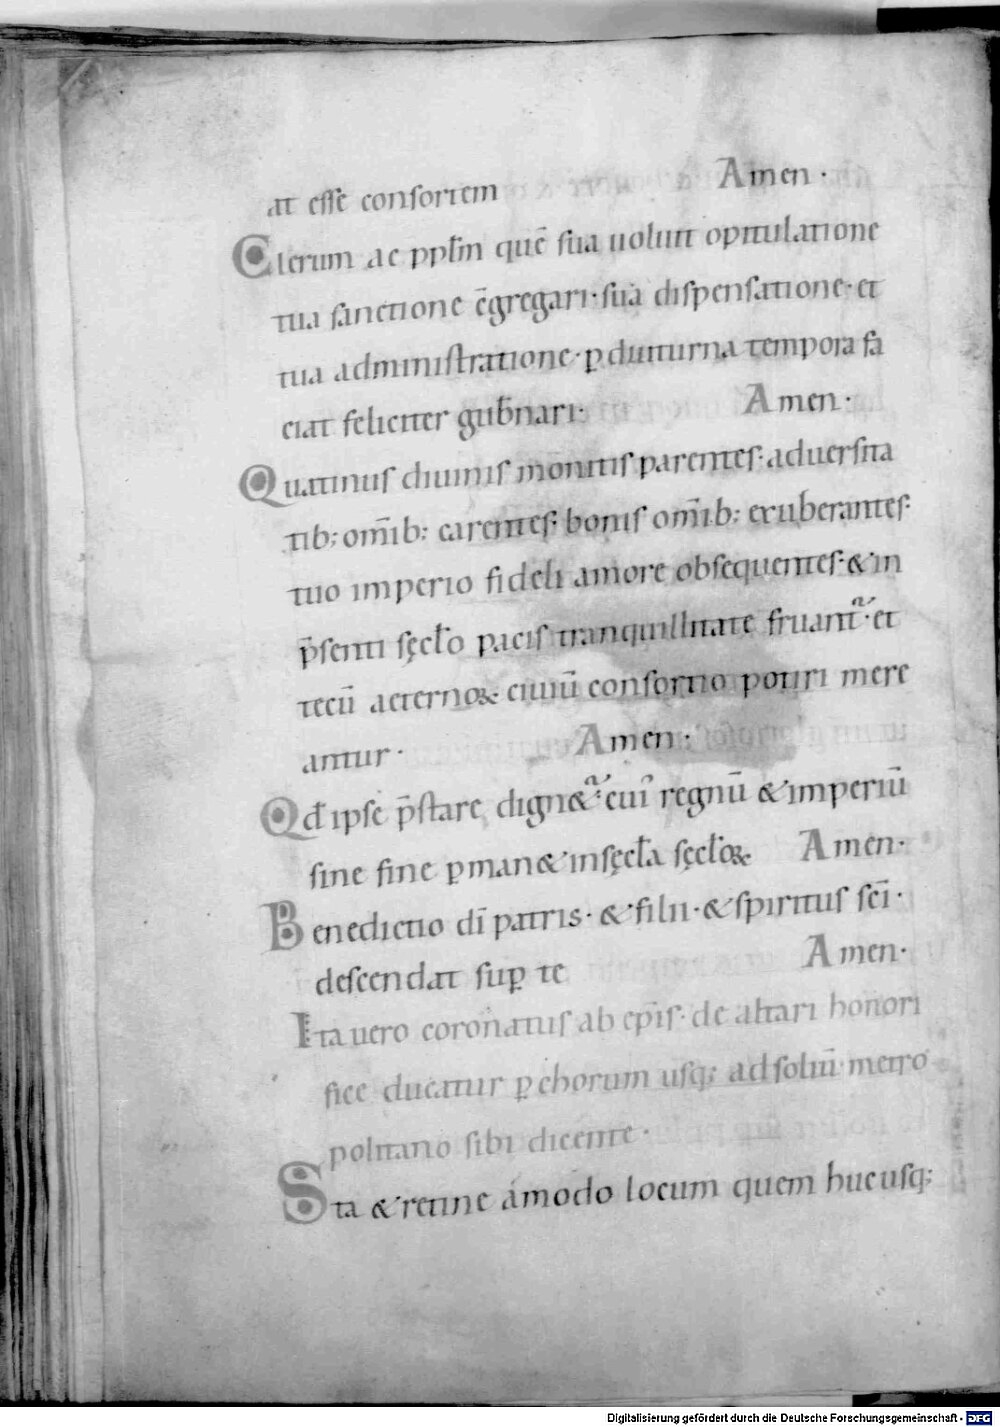 at esse consortem Amen·
Clerum ac pplm̄ quē sua uoluit opitulatione
tua sanctione c̄gregari· sua dispensatione· et
tua administratione· ꝑ diuturna tempora fa
ciat feliciter gub̄nari· Amen·
Quatinus diuinis monitis parentes· aduersita
tib; om̄ib; carentes· bonis om̄ib; exuberantes·
tuo imperio fideli amore obsequentes· & in
p̄senti sęcl̄o pacis tranquillitate fruant᷑· et
tecū aeternoꝝ ciuiū consortio potiri mere
antur· Amen·
Qd̄ ipse p̄stare dign&᷑· cui᷒ regnū & imperiū
sine fine ꝑman& in sęcl̄a sęcl̄oꝝ Amen·
Benedictio dī patris· & filii· & spiritus sc̄i·
descendat sup̱ te Amen·
Ita uero coronatus ab ep̄is· de altari honori
fice ducatur ꝑ chorum usq; ad soliū· metro
politano sibi dicente·
Sta & retine amodo locum quem hucusq;
Digitalisierung gefördert durch die Deutsche Forschungsgemeinschaft - DFG